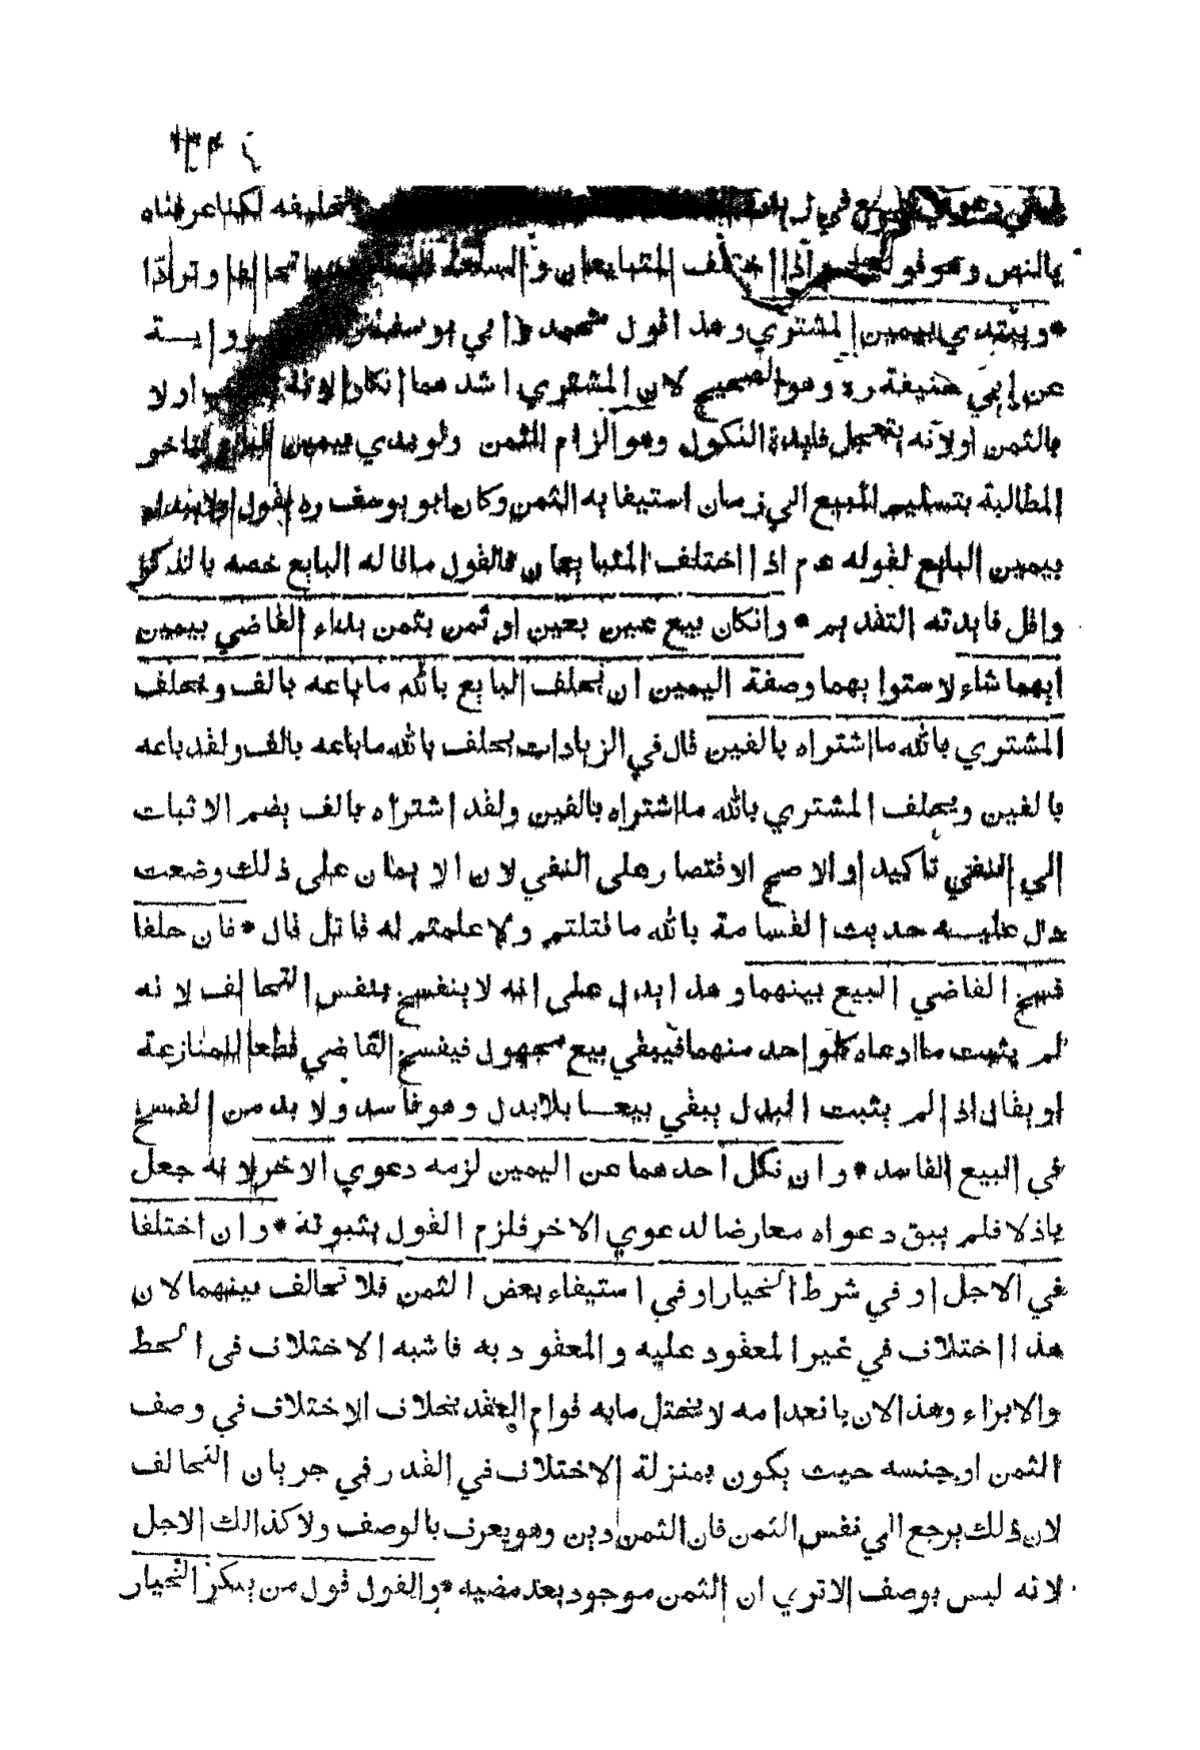 المبيع في يده تحليفه لكنا عرفناه
بالنص وهو قوله عم اذا اختلف المتبايعان والسلعة تحالفا وترادّا
* ويبتدي بيمين المشتري وهذا قول محمد و ابي يوسف رواية
عن ابي حنيفة ره وهو الصحيح لان المشتري اشدهما انكارا لانه اولا
بالثمن اولانه يتعجل فايدة النكول وهو الزام الثمن ولو بدي بيمين البايع يتاخر
المطالبة بتسليم المبيع الي زمان استيفا به الثمن وكان ابو يوسف ره يقول اولا يبداء
بيمين البايع لقوله عم اذا اختلف المتبايعان فالقول ما قاله البايع خصه بالذكر
واقل فايدته التقديم * وانكان بيع عين بعين او ثمن بثمن بداء القاضي بيمين
ايهما شاء لاستوا يهما وصفة اليمين ان يحلف البايع بالله ما باعه بالف ويحلف
المشتري بالله ما اشتراه بالفين قال في الزيادات يحلف بالله ما باعه بالف ولقد باعه
بالفين ويحلف المشتري بالله ما اشتراه بالفين ولقد اشتراه بالف يضم الاثبات
الي النفي تاكيدا والاصح الاقتصار على النفي لان الايمان على ذلك وضعت
دل عليه حديث القسامة بالله ما قتلتم ولا علمتم له قاتل قال * فان حلفا
فسخ القاضي البيع بينهما وهذا يدل على انه لا ينفسخ بنفس التحالف لانه
لم يثبت ما ادعاه كل واحد منهما فيبقي بيع مجهول فيفسخ القاضي قطعا للمنازعة
او يقال اذا لم يثبت البدل يبقي بيعا بلا بدل وهو فاسد ولا بد من الفسخ
في البيع الفاسد * وان نكل احدهما عن اليمين لزمه دعوي الاخر لانه جعل
باذلا فلم يبق دعواه معارضا لدعوي الاخر فلزم القول بثبوتة * وان اختلفا
في الاجل او في شرط الخيار او في استيفاء بعض الثمن فلا تحالف بينهما لان
هذا اختلاف في غير المعقود عليه والمعقود به فاشبه الاختلاف في الحط
والابراء وهذا لان بانعدامه لا يختل ما به قوام العقد بخلاف الاختلاف في وصف
الثمن او جنسه حيث يكون بمنزلة الاختلاف في القدر في جريان التحالف
لان ذلك يرجع الي نفس الثمن فان الثمن دين وهو يعرف بالوصف ولا كذالك الاجل
لانه ليس بوصف الاتري ان الثمن موجود بعد مضيه * والقول قول من ينكر الخيار